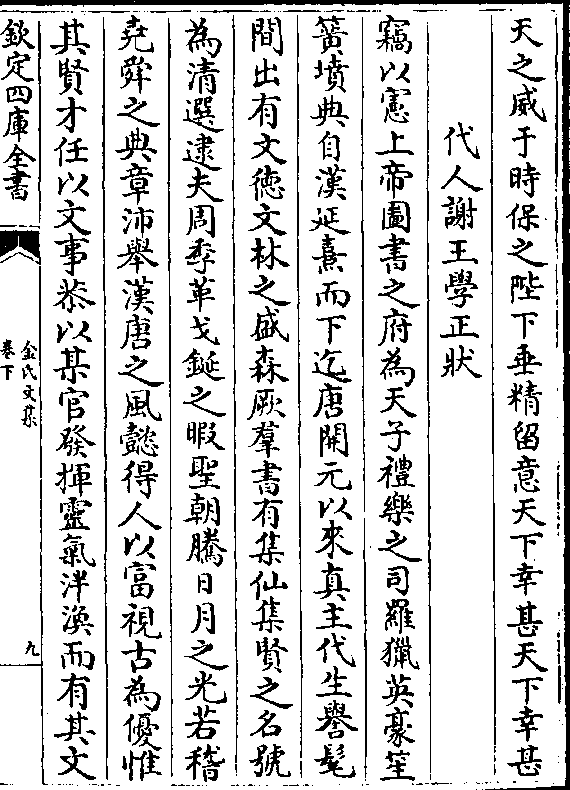 天之威于時保之陛下垂精留意天下幸甚天下幸甚
代人謝王學正狀
竊以憲上帝圖書之府為天子禮樂之司羅獵英豪笙
簧墳典自漢延熹而下迄唐開元以來真主代生譽髦
間出有文徳文林之盛森厥羣書有集仙集賢之名號
為清選逮夫周季革戈鋋之暇聖朝騰日月之光若稽
堯舜之典章沛舉漢唐之風懿得人以富視古為優惟
其賢才任以文事恭以某官發揮靈氣泮渙而有其文
欽定四庫全書
金氏文集
卷下
九